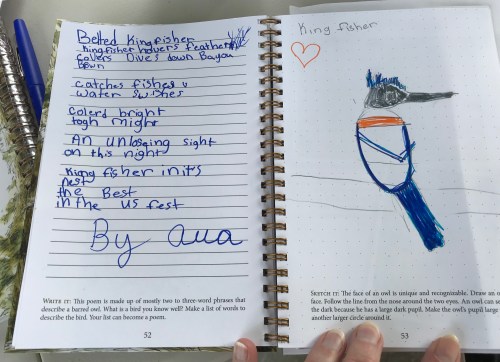 Belted Kingfisher
Kingfisher hovers feather
covers Dives down Bayou
Down
catches fishes
water swishes
Colerd bright
togh might
An unloseing sight
on this night
King fisher in it's
nest
the Best
in the us fest
By Ava
WRITE IT: This poem is made up of mostly two to three-word phrases that
describe a barred owl. What is a bird you know well? Make a list of words to
describe the bird. Your list can become a poem.
52
King fisher
SKETCH IT: The face of an owl is unique and recognizable. Draw an o
face. Follow the line from the nose around the two eyes. An owl can se
the dark because he has a large dark pupil. Make the owl's pupil large
another larger circle around it.
53